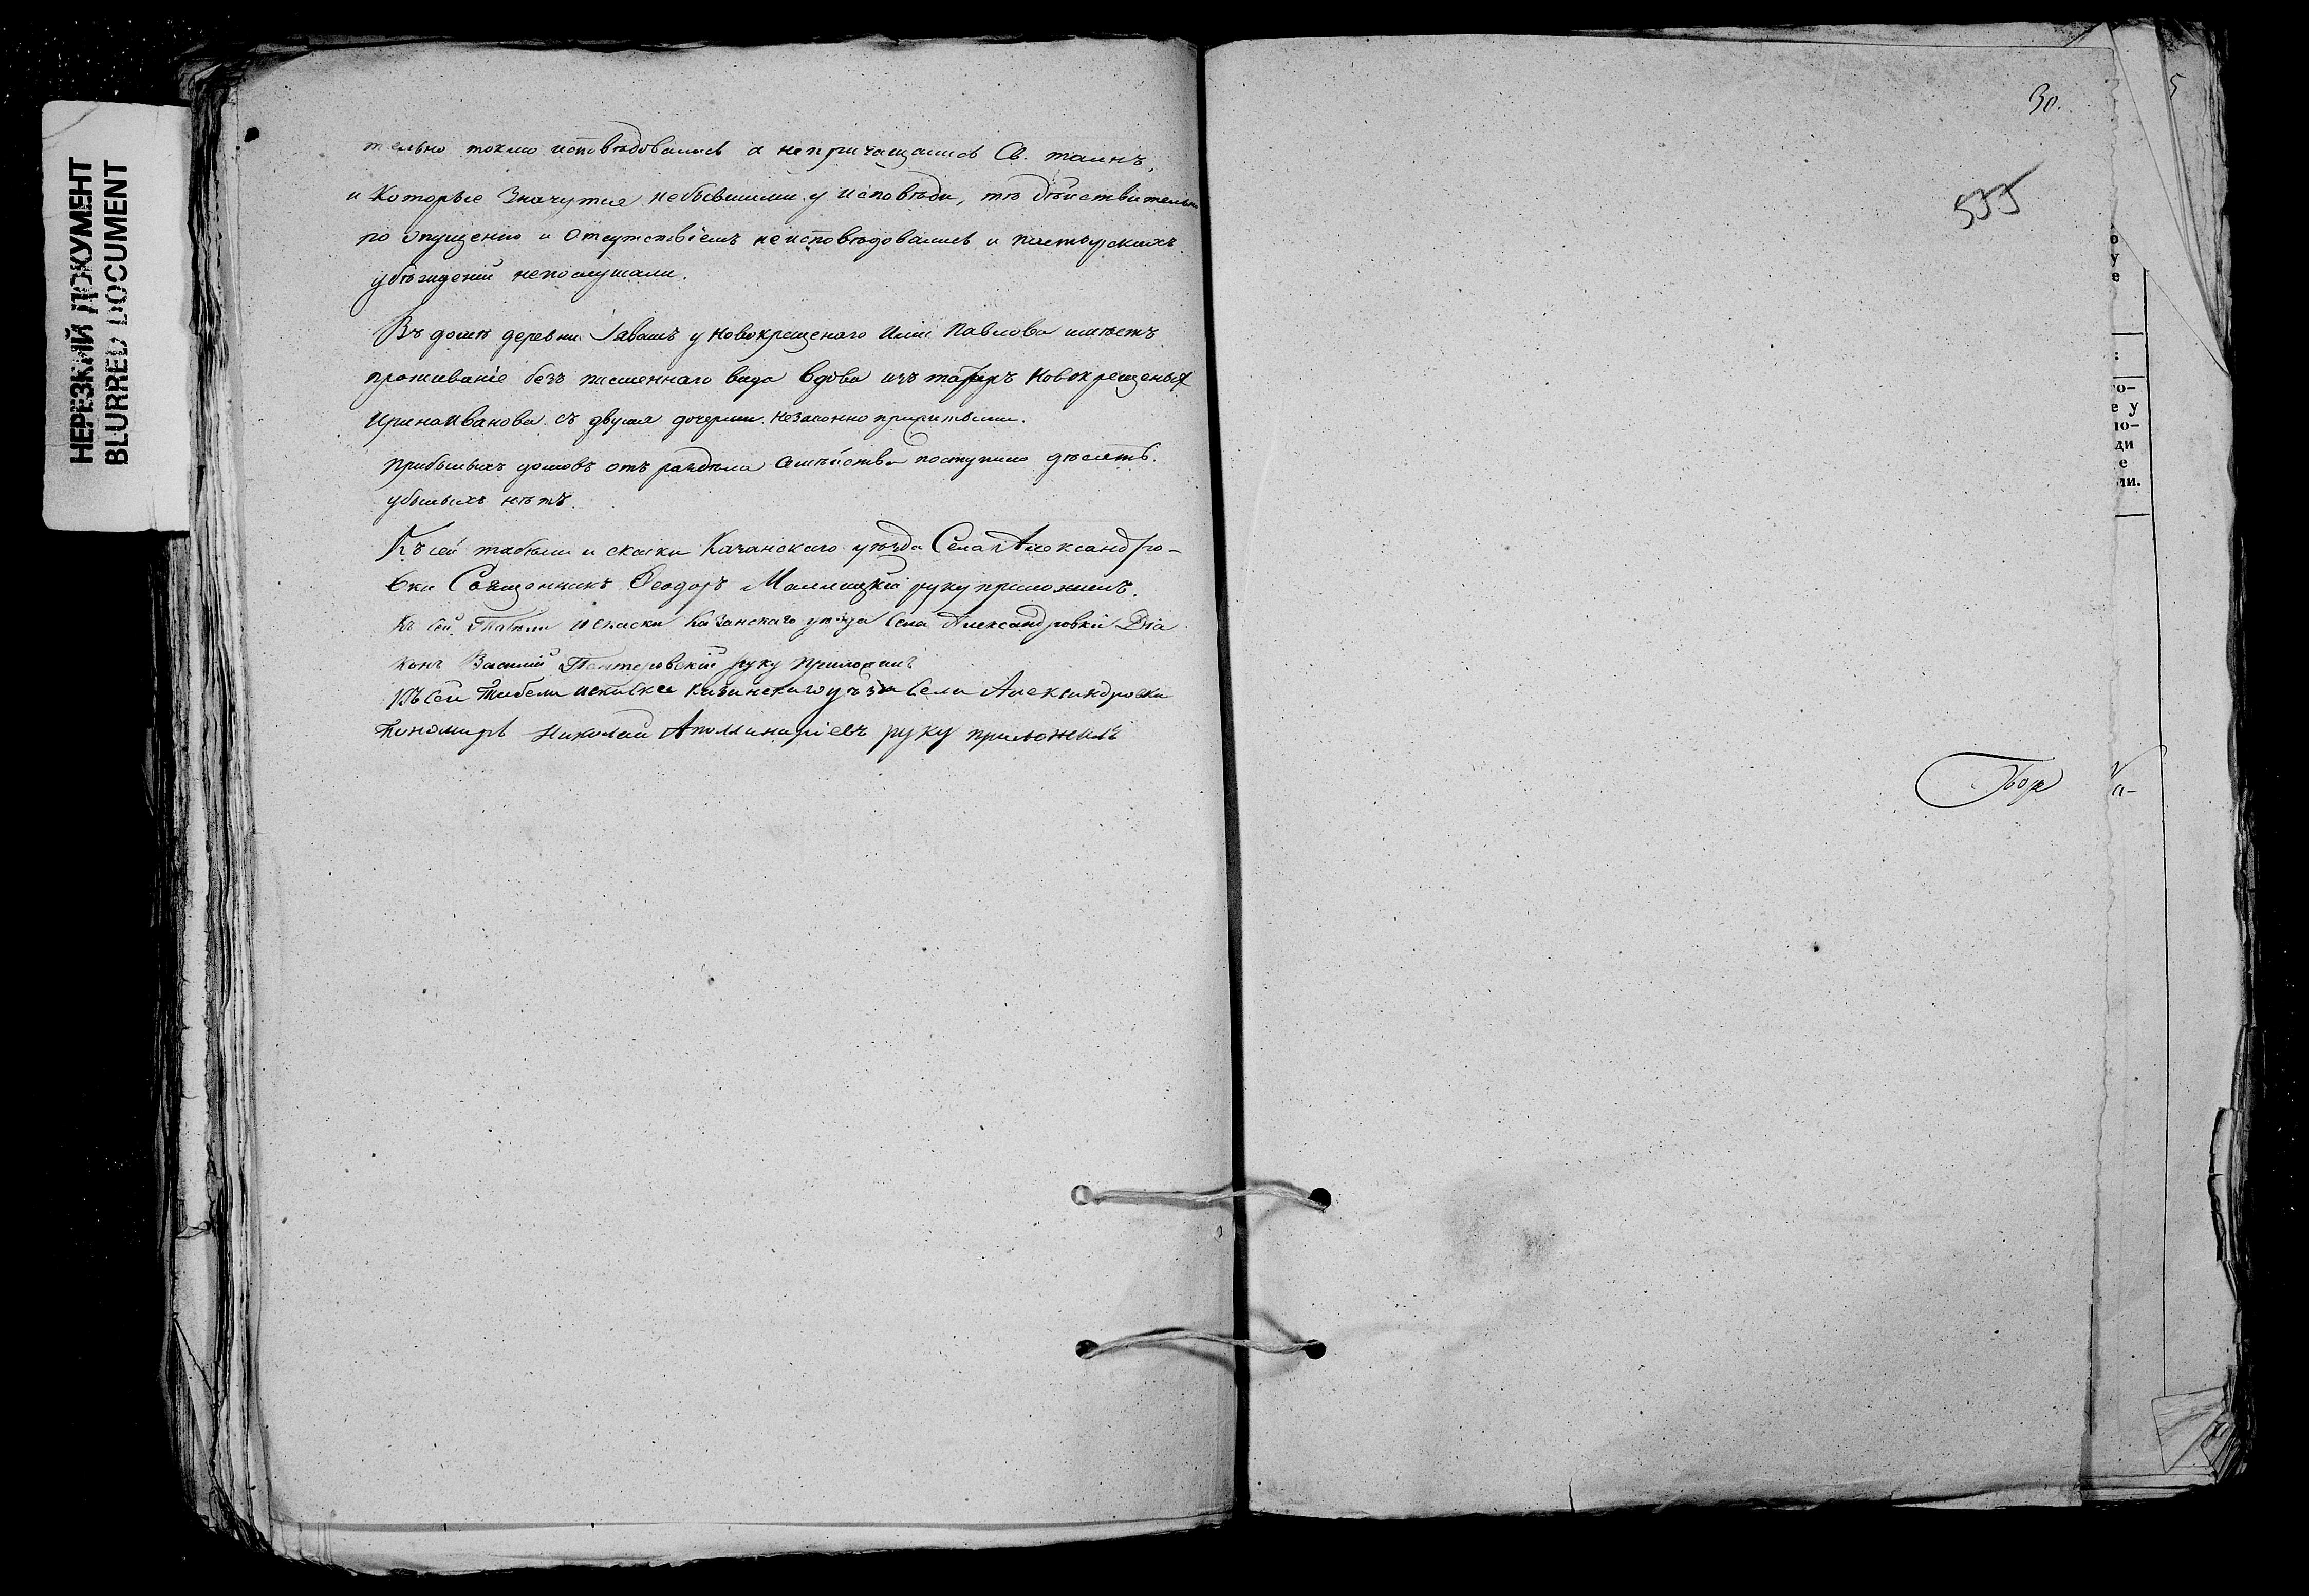 НЕРЕЗКИЙ ДОКУМЕНТ
BLURRED DOCUMENT
тельно токмо исповѣдовались а непричащались Св. таинъ,
и Которые Значутся небывшими у исповѣди, тѣ дѣйствительно
по опущенію и Отсутствіемъ неисповѣдовались и пастырскихъ
убѣжденій непослушали.
Въ домѣ деревни у Новокрещенаго Ильи Павлова имѣетъ
проживаніе безъ писменнаго вида вдова изъ татаръ Новокрещеныхъ
Ирина Иванова съ двумя дочерьми незаконно прижитыми.
Прибылыхъ домовъ отъ раздѣла Семѣйства поступило десять.
убылыхъ нѣтъ.
Къ сей табели и скаски Казанскаго уѣзда Села Александро-
вки Священникъ Ѳеодоръ руку приложилъ.
Къ сей Табели и скаски Казанскаго уѣзда Села Александровки Діа
конъ Василій руку Приложилъ
Къ сей Табели и скаске Казанскаго уѣзда Села Александровки
Пономарь Николай Аполлинаріевъ руку приложилъ
30.
о
у
е
:
го-
е у
ю-
ди
е
ли.
а-